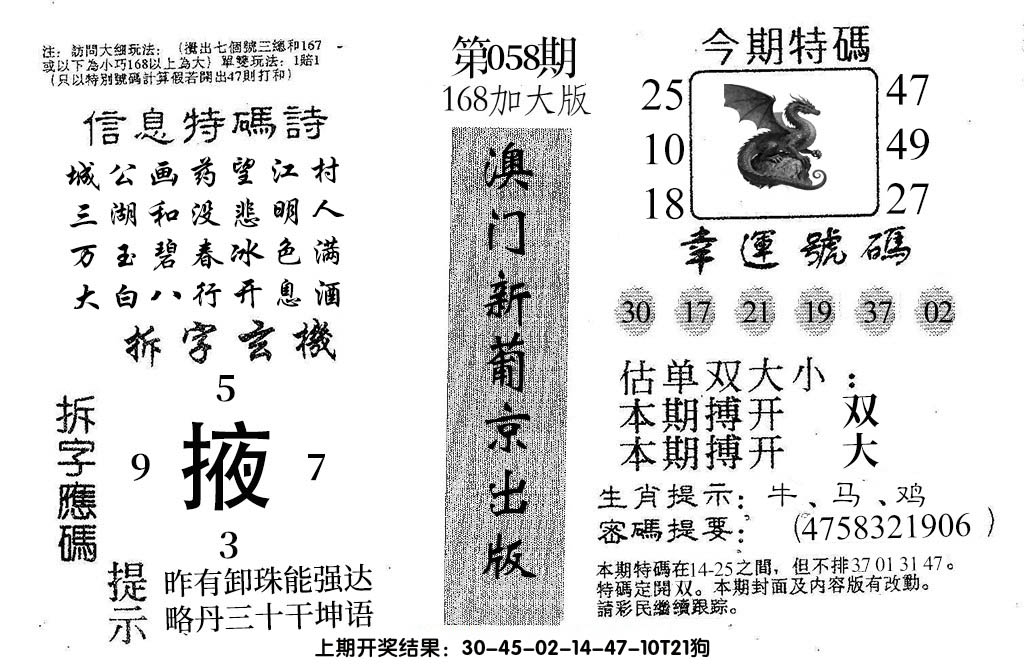 注：訪問大細玩法：（攪出七個號三總和167
或以下為小巧168以上為大）單雙玩法：1賠1
（只以特別號碼計算假若開出47則打和）
信息特碼詩
城公画药望江村
三湖和没悲明人
万玉碧春冰色满
大白八行开息酒
拆字玄機
拆字應碼
5
9 掖 7
3
提示
昨有卸珠能强达
略丹三十干坤语
第058期
168加大版
澳门新葡京出版
今期特碼
25 47
10 49
18 27
幸運號碼
30 17 21 19 37 02
估单双大小：
本期搏开 双
本期搏开 大
生肖提示：牛、马、鸡
密碼提要：（4758321906）
本期特碼在14-25之間，但不排37 01 31 47。
特碼定開双。本期封面及内容版有改動。
請彩民繼續跟踪。
上期开奖结果：30-45-02-14-47-10T21狗